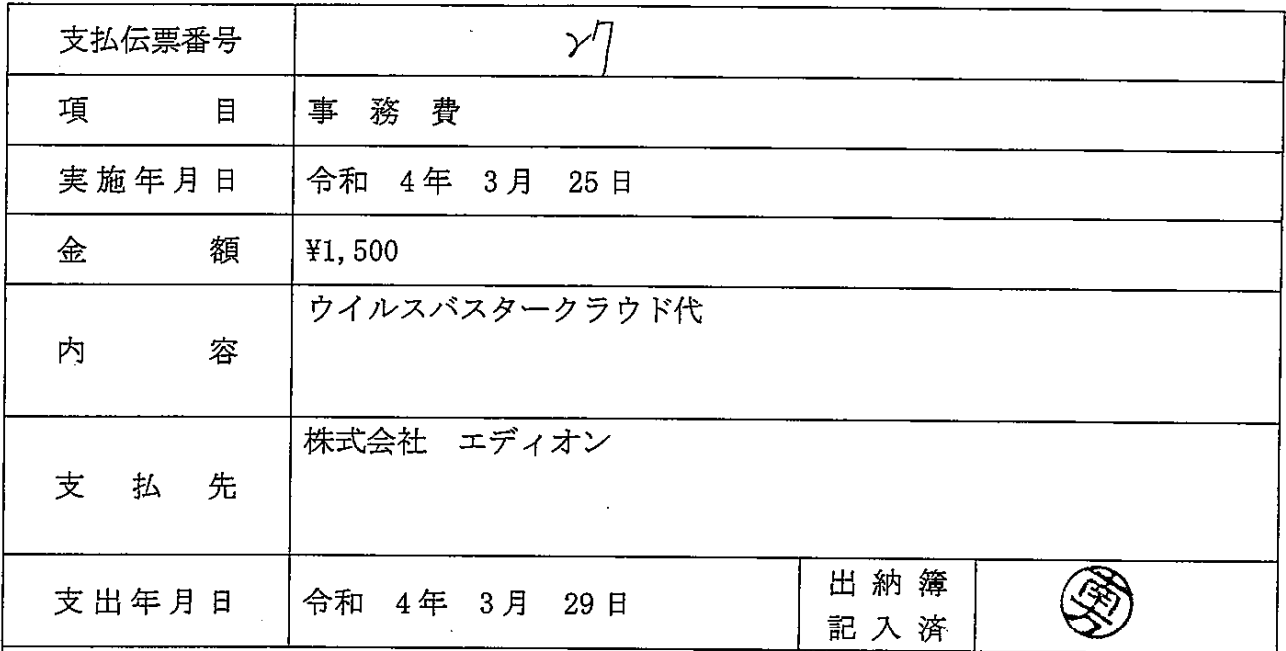 支払伝票番号 27
項目 事務費
実施年月日 令和 4年 3月 25日
金額 ¥1,500
内容 ウイルスバスタークラウド代
支払先 株式会社 エディオン
支出年月日 令和 4年 3月 29日 出納簿
記入済